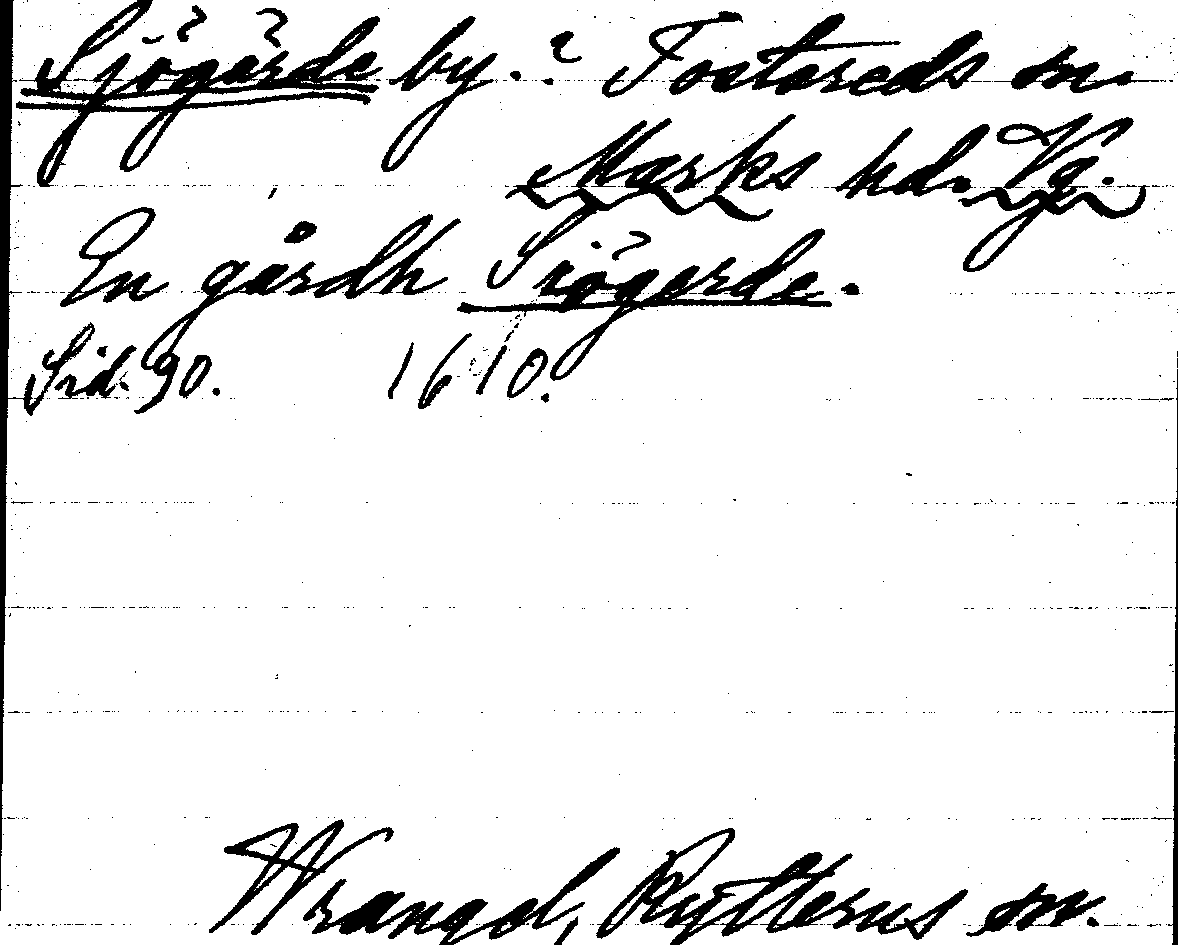 Sjögärde by.? Tostareds sn.
Marks hd. Vg.
En gårdh Siögerde.
Sid. 90. 1610.
Wrangel, Rytterus sn.